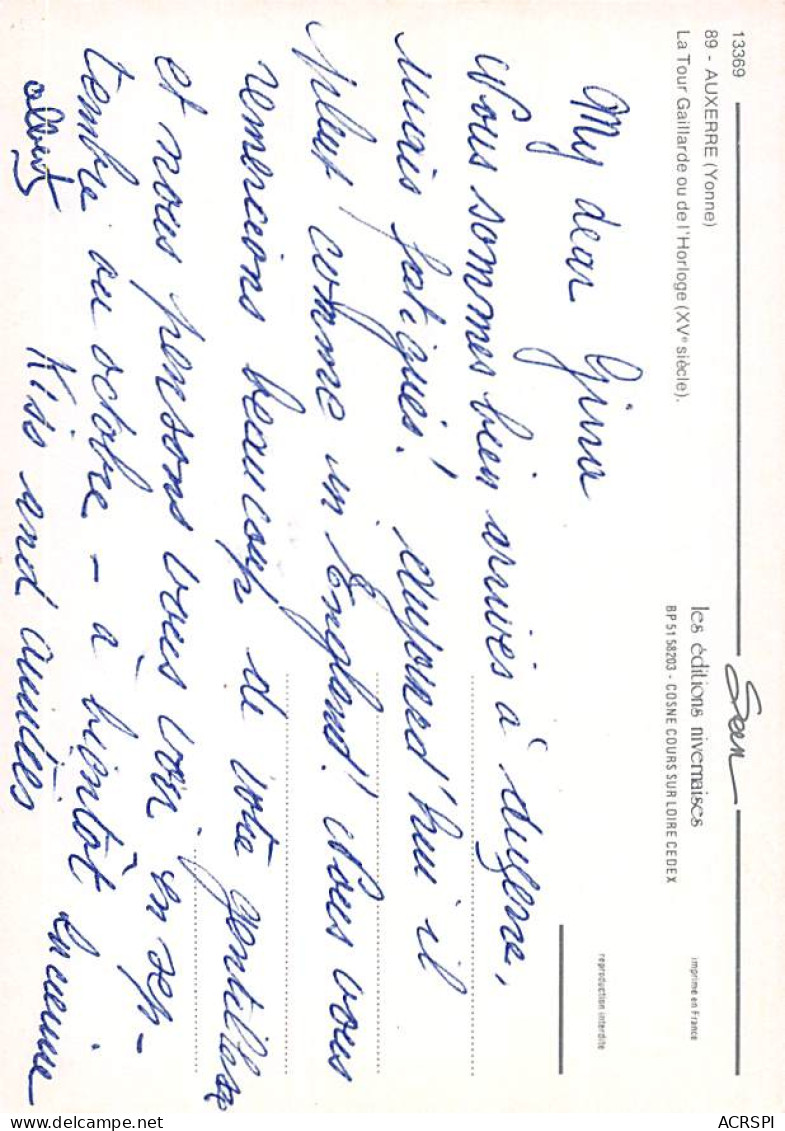 13369
89 - AUXERRE (Yonne)
La Tour Gaillarde ou de l'Horloge (XVe siècle).
San
les éditions nivernaises
BP 51 58203 - COSNE COURS SUR LOIRE CEDEX
imprimé en France
reproduction interdite
My dear Gina
Nous sommes bien arrivés à Auxerre,
mais fatigués! aujourd'hui il
pleut comme in England! Nous vous
remercions beaucoup de votre gentillesse
et nous pensons vous voir en sep-
tembre ou octobre - à bientôt Lucienne
albert Kiss and amitiés
ACRSPI